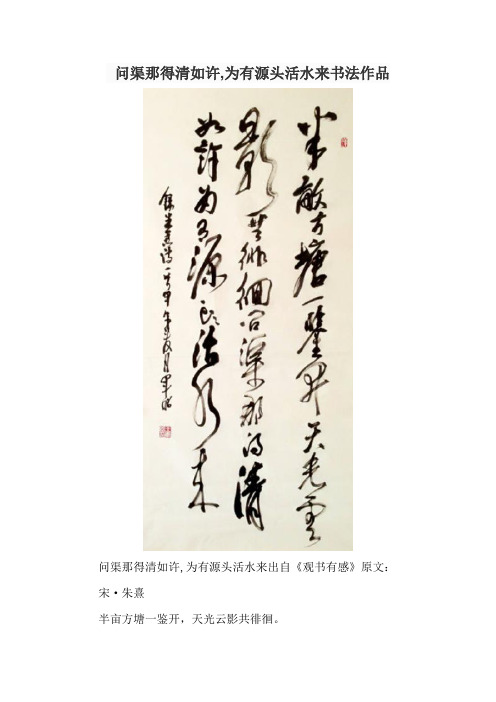 问渠那得清如许,为有源头活水来书法作品
半畝方塘一鑒開天光雲
影共徘徊问渠那得清
如許為有源头活水来
录朱熹诗一首甲午年夏月
问渠那得清如许,为有源头活水来出自《观书有感》原文：
宋·朱熹
半亩方塘一鉴开，天光云影共徘徊。